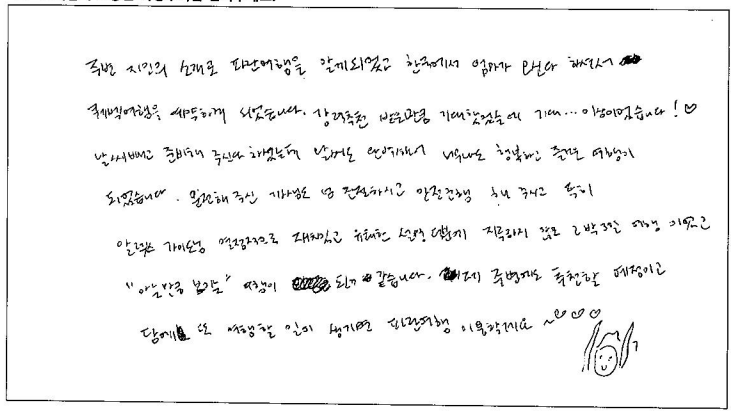 주변 지인의 소개로 파란여행을 알게되었고 한국에서 엄마가 오신다 하셔서
퀘벡여행을 예약하게 되었습니다. 강력추천 받은만큼 기대했었는데 기대... 이상이었습니다! ♡
날씨빼고 준비해 주신다 하셨는데 날씨도 완벽해서 너무나도 행복하고 즐거운 여행이
되었습니다. 운전해주신 기사님도 넘 친절하시고 안전운행 해 주시고 특히
가이드님 열정적으로 재미있고 유쾌한 설명 덕분에 지루하지 않은 2박3일 여행 이었고
"아는만큼 보이는" 여행이 되었던 같습니다. 제 주변에도 추천할 예정이고
담에 또 여행할 일이 생기면 파란여행 이용할게요 ~♡♡♡